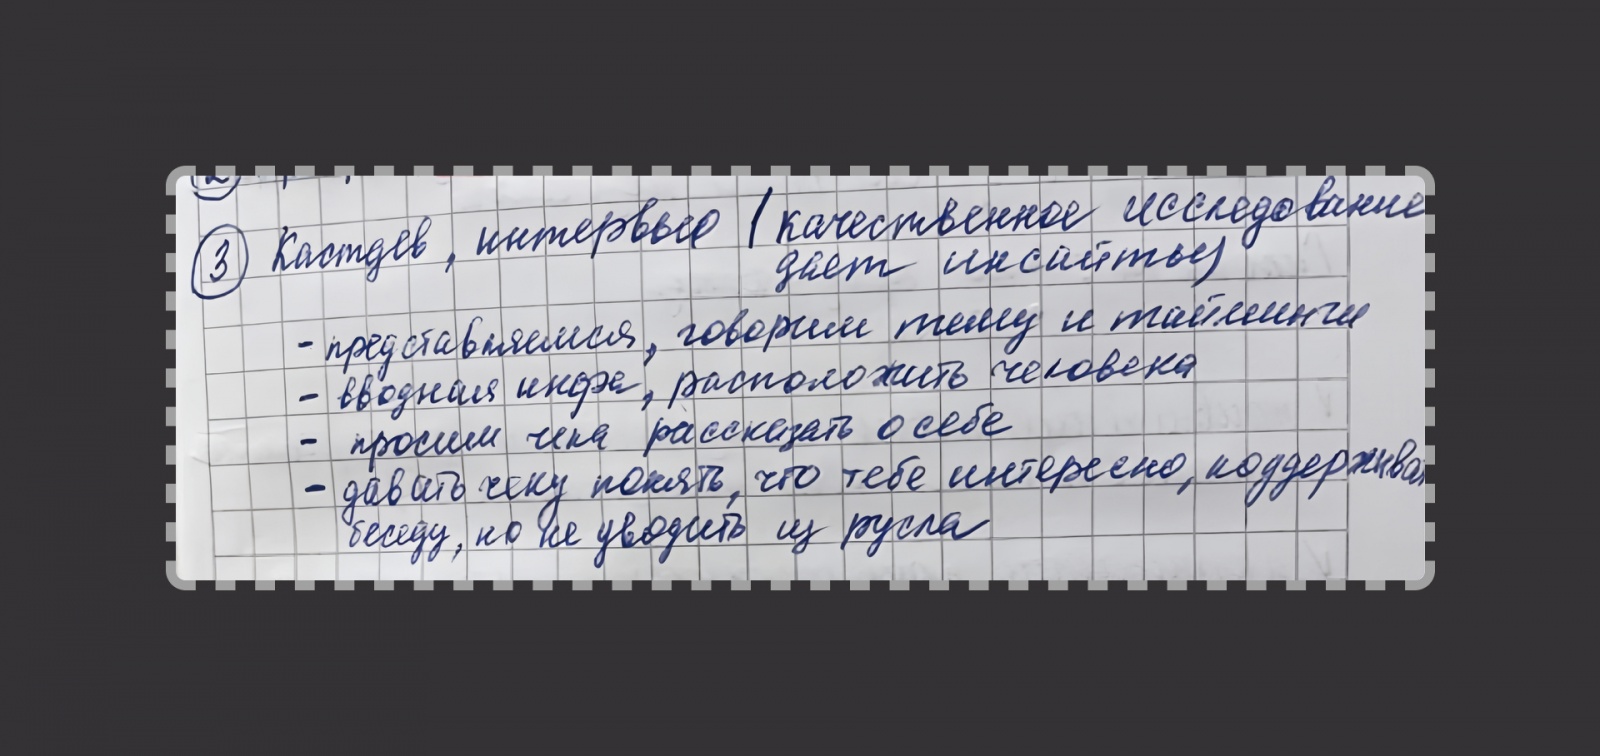 ③ Кастдев, интервью (качественное исследование
дает инсайты)
- представляемся, говорим тему и тайминги
- вводная инфа, расположить человека
- просим чела рассказать о себе
- давать челу понять, что тебе интересно, поддержива
беседу, но не уводить из русла